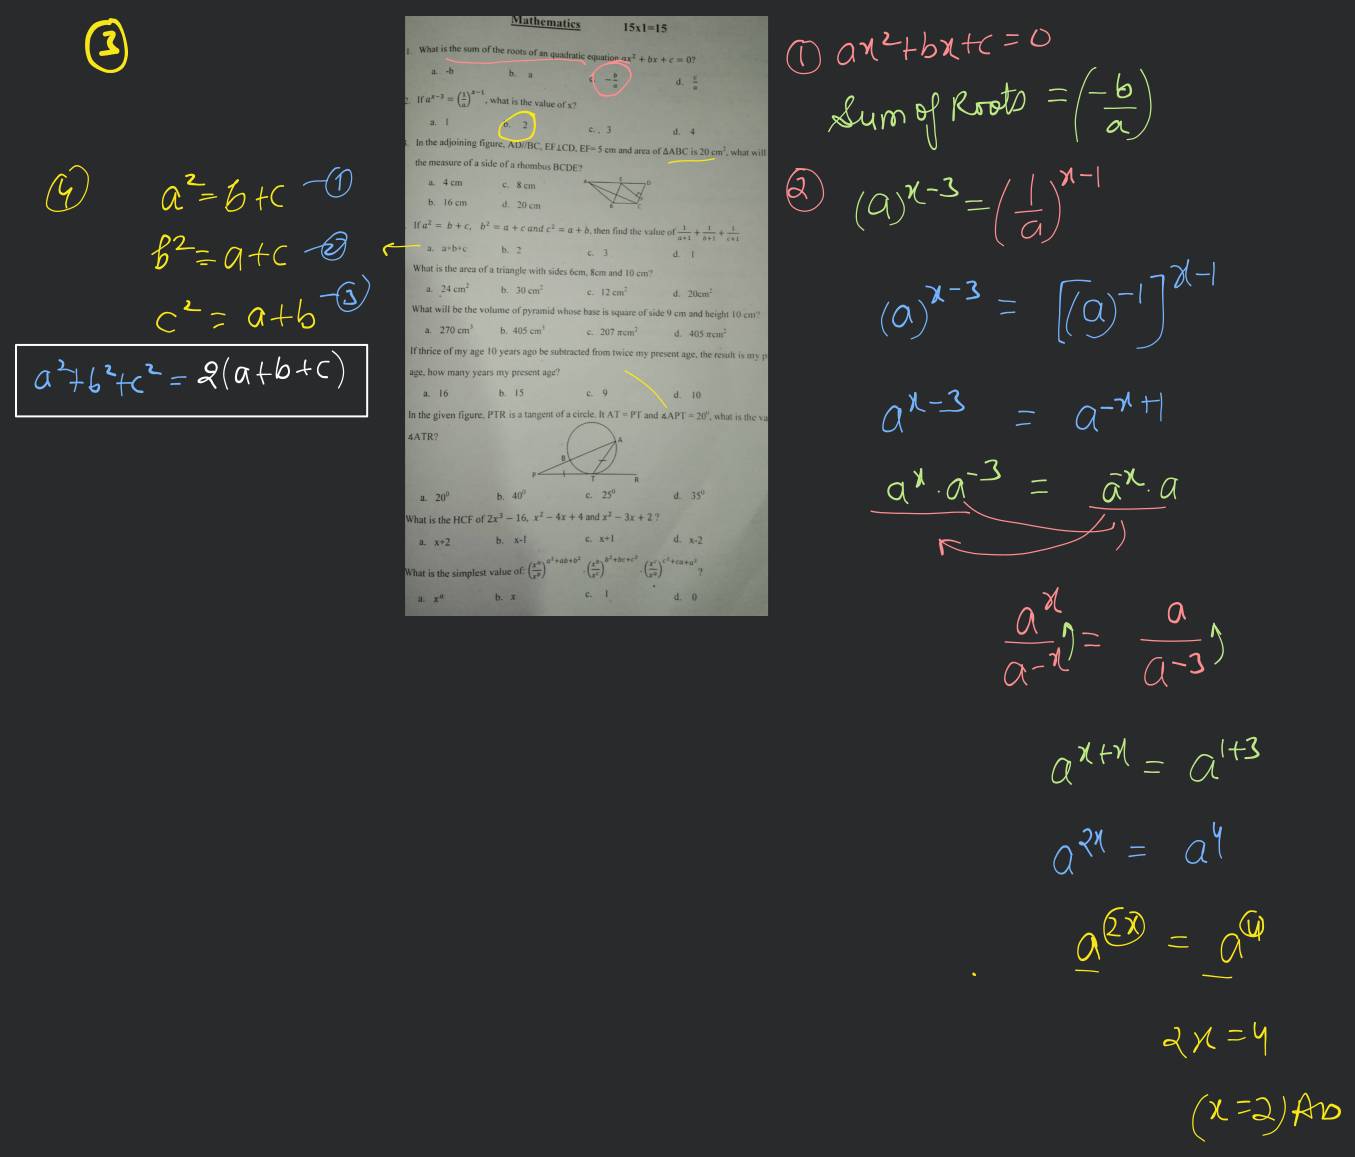 3
4
a² = b+c -1
b² = a+c -2
c² = a+b -3
a²+b²+c² = 2(a+b+c)
Mathematics 15x1=15
1. What is the sum of the roots of an quadratic equation ax² + bx + c = 0?
a. -b b. a c. -b/a d. c/a
2. If a^(x-3) = (1/a)^(x-1), what is the value of x?
a. 1 b. 2 c. 3 d. 4
In the adjoining figure, AD//BC, EF⊥CD, EF= 5 cm and area of ΔABC is 20 cm², what will
the measure of a side of a rhombus BCDE?
a. 4 cm c. 8 cm
b. 16 cm d. 20 cm
If a² = b + c, b² = a + c and c² = a + b, then find the value of 1/(a+1) + 1/(b+1) + 1/(c+1)
a. a+b+c b. 2 c. 3 d. 1
What is the area of a triangle with sides 6cm, 8cm and 10 cm?
a. 24 cm² b. 30 cm² c. 12 cm² d. 20cm²
What will be the volume of pyramid whose base is square of side 9 cm and height 10 cm?
a. 270 cm³ b. 405 cm³ c. 207 πcm³ d. 405 πcm³
If thrice of my age 10 years ago be subtracted from twice my present age, the result is my p
age, how many years my present age?
a. 16 b. 15 c. 9 d. 10
In the given figure, PTR is a tangent of a circle. It AT = PT and ∡APT = 20⁰, what is the va
∡ATR?
A
B
P T R
a. 20⁰ b. 40⁰ c. 25⁰ d. 35⁰
What is the HCF of 2x³ − 16, x² − 4x + 4 and x² − 3x + 2 ?
a. x+2 b. x-1 c. x+1 d. x-2
What is the simplest value of: (x^a/x^b)^(a²+ab+b²) · (x^b/x^c)^(b²+bc+c²) · (x^c/x^a)^(c²+ca+a²) ?
a. x^a b. x c. 1 d. 0
1 ax²+bx+c = 0
Sum of Roots = (-b/a)
2 (a)^(x-3) = (1/a)^(x-1)
(a)^(x-3) = [(a)^-1]^(x-1)
a^(x-3) = a^(-x+1)
a^x . a^-3 = a^-x . a
a^x/a^-x = a/a^-3
a^(x+x) = a^(1+3)
a^2x = a^4
a^2x = a^4
2x = 4
(x=2) A